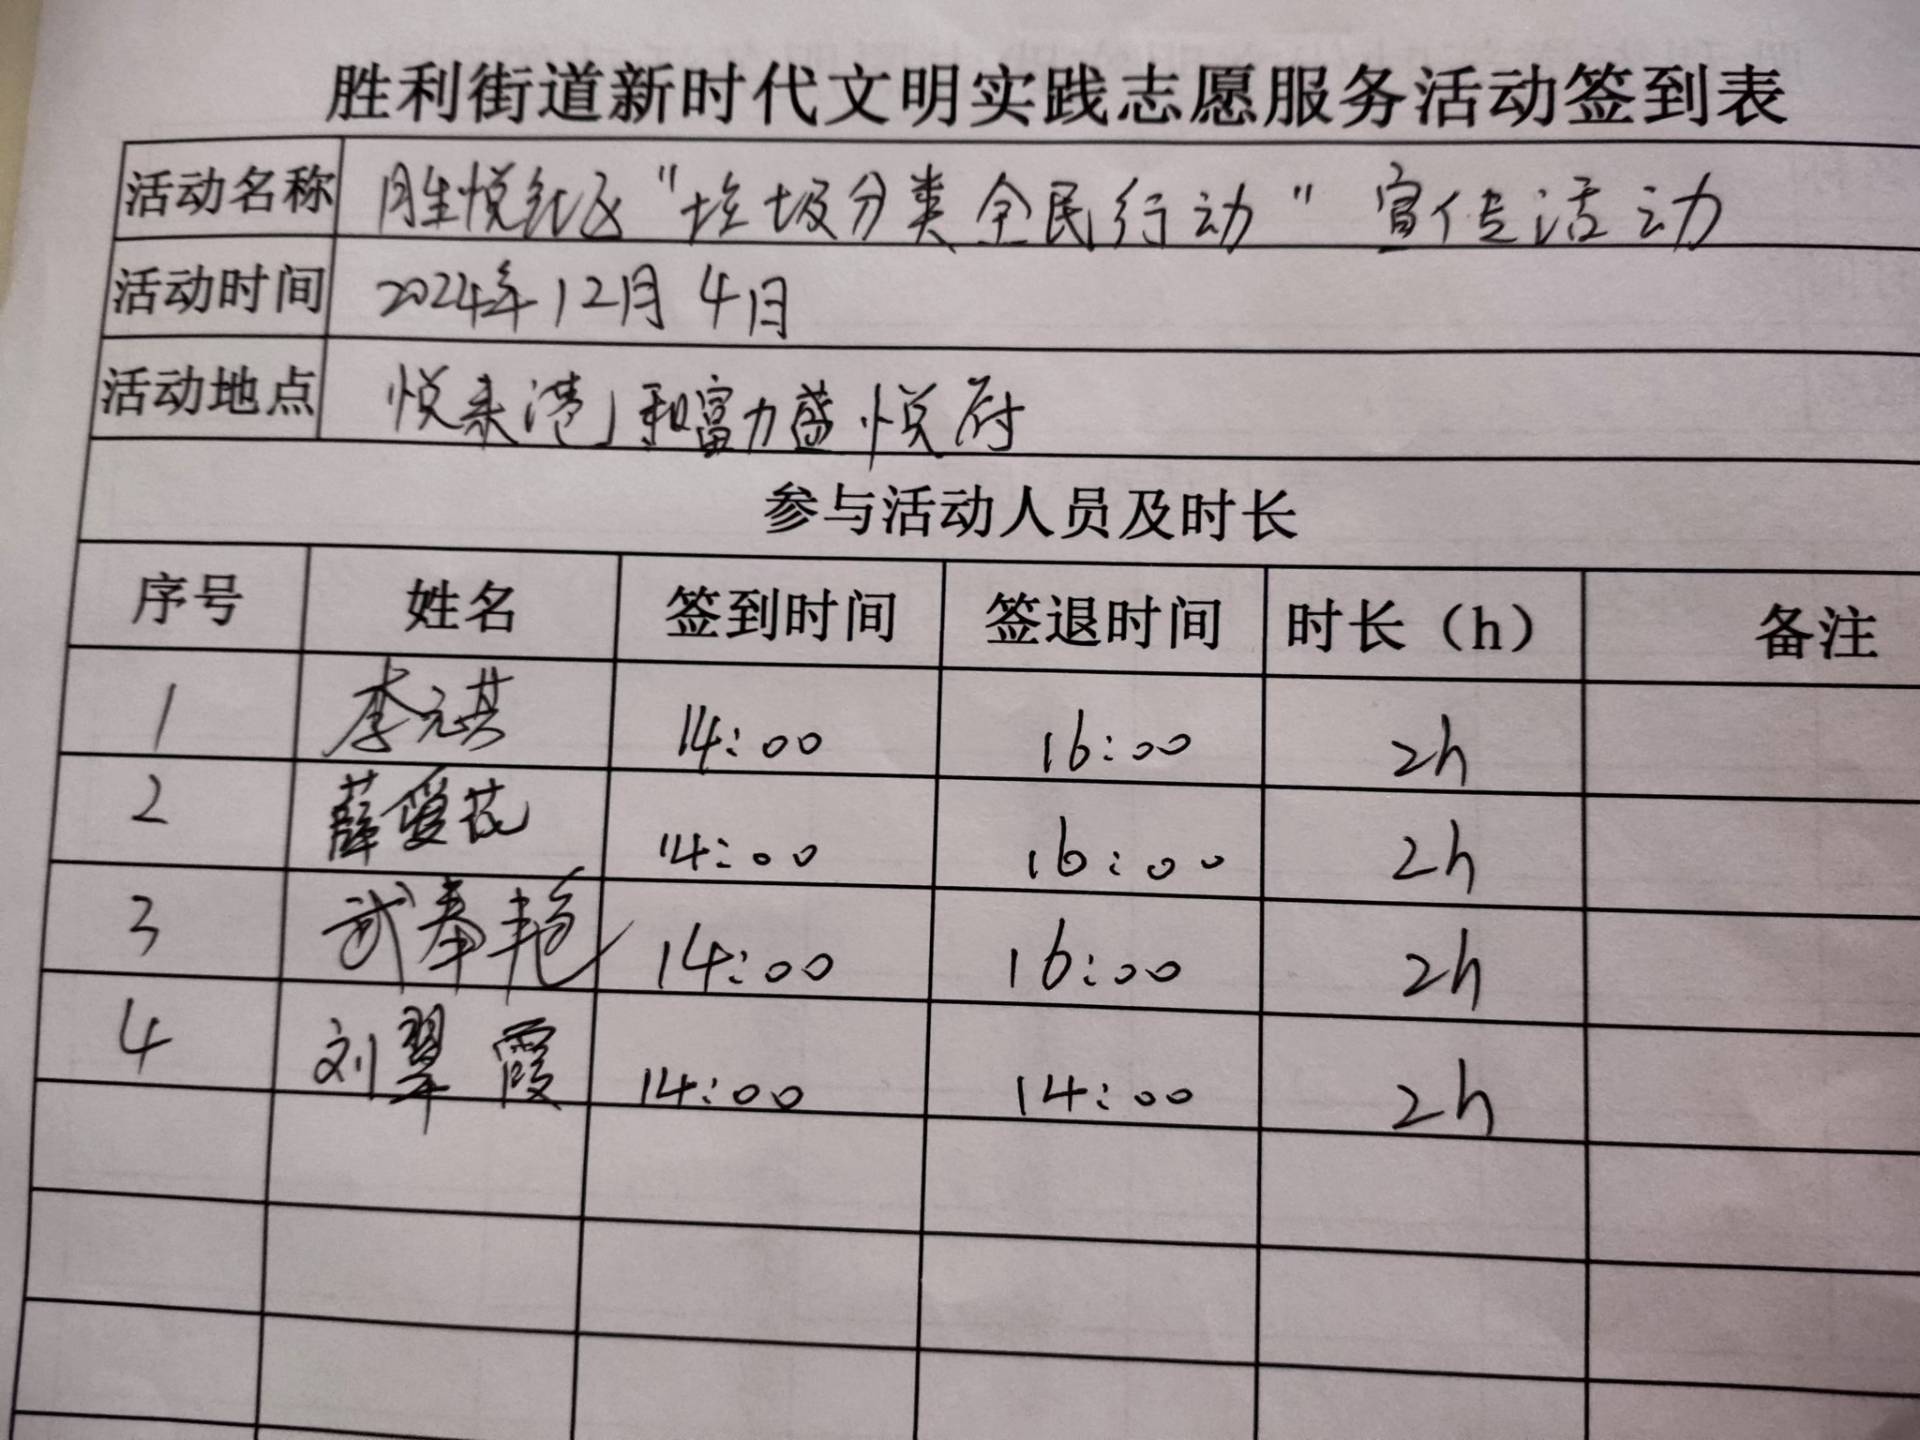 胜利街道新时代文明实践志愿服务活动签到表
活动名称 胜悦社区"垃圾分类全民行动"宣传活动
活动时间 2024年12月4日
活动地点 悦来港和富力盛悦府
参与活动人员及时长
序号 姓名 签到时间 签退时间 时长（h） 备注
1 李元祺 14:00 16:00 2h
2 薛爱花 14:00 16:00 2h
3 武春艳 14:00 16:00 2h
4 刘翠霞 14:00 14:00 2h